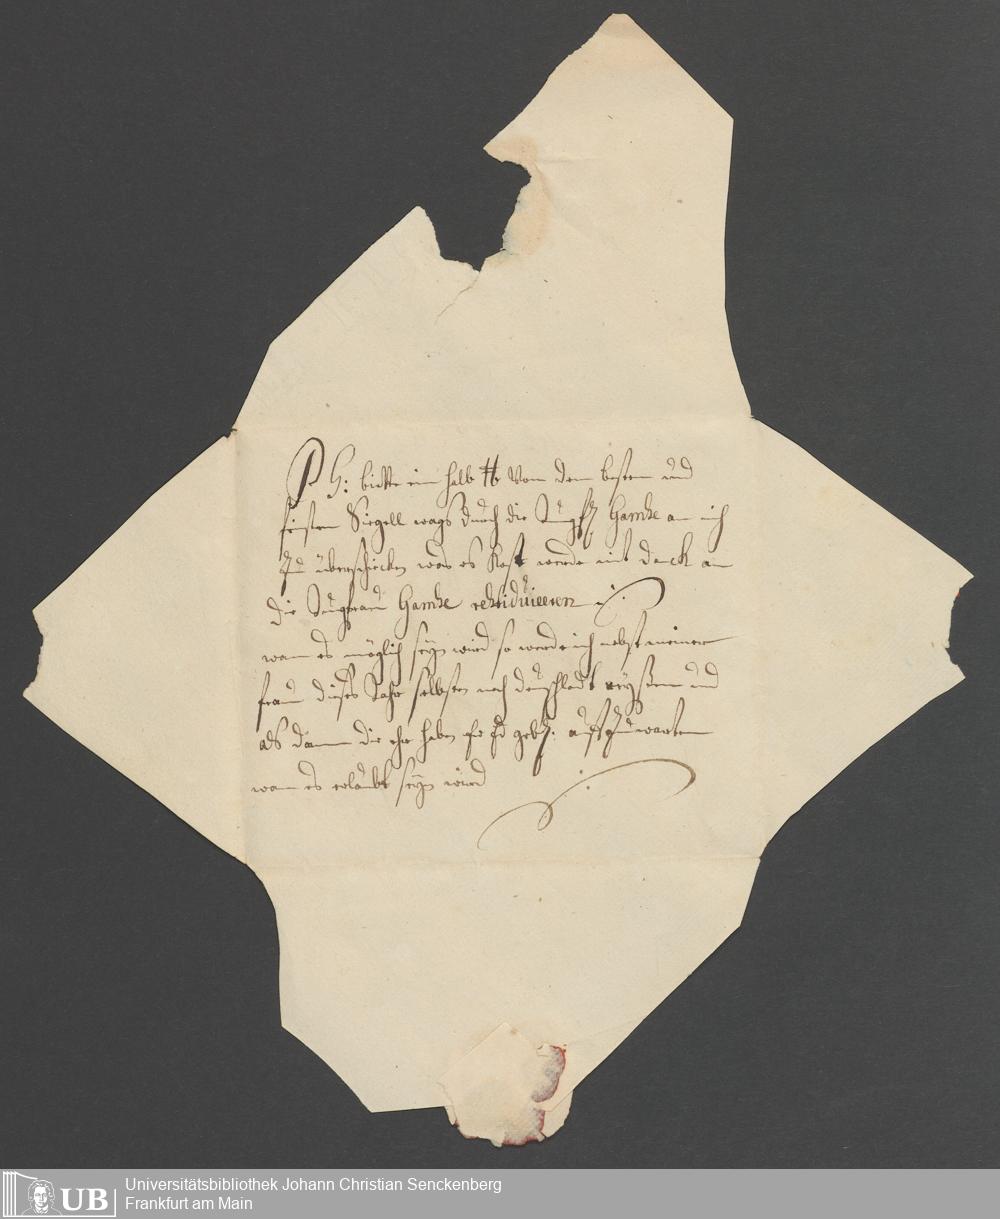 PS: bitte ein halb ℔ von dem besten und
feinsten Siegell wags durch die Jungfr Gamke an mich
zu überschicken was es kost werde mit danck an
die Jungfrau Gamke restiduieren
wan es möglich seyn wird so werde ich nebst meiner
frau dieses Jahr selbsten nach deuschlandt reyßen und
als dann die ehr haben sie zu aufzuwarten
wan es erlaubt seyn wird
UB
Universitätsbibliothek Johann Christian Senckenberg
Frankfurt am Main